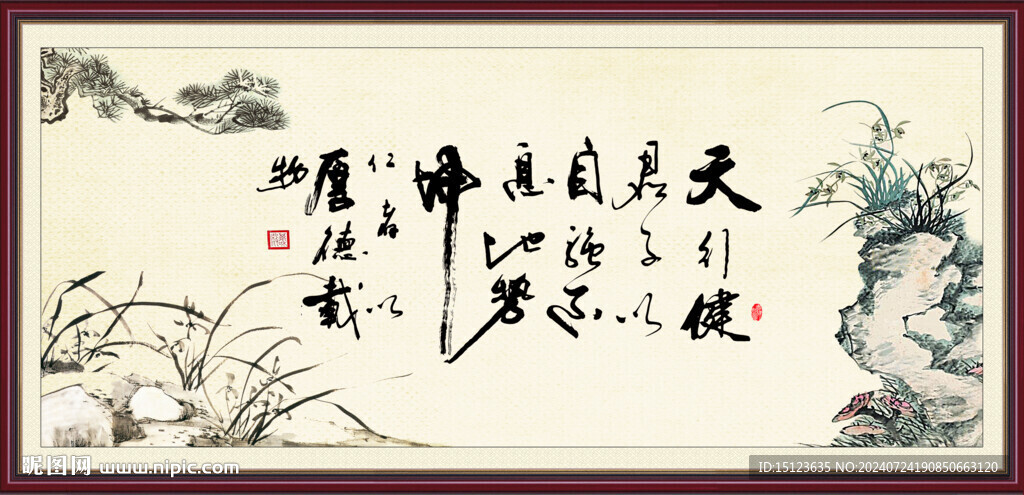 天行健
君子以
自强不
息地势
坤
仁者以
厚德載
物
昵图网 www.nipic.com
ID:15123635 NO:20240724190850663120